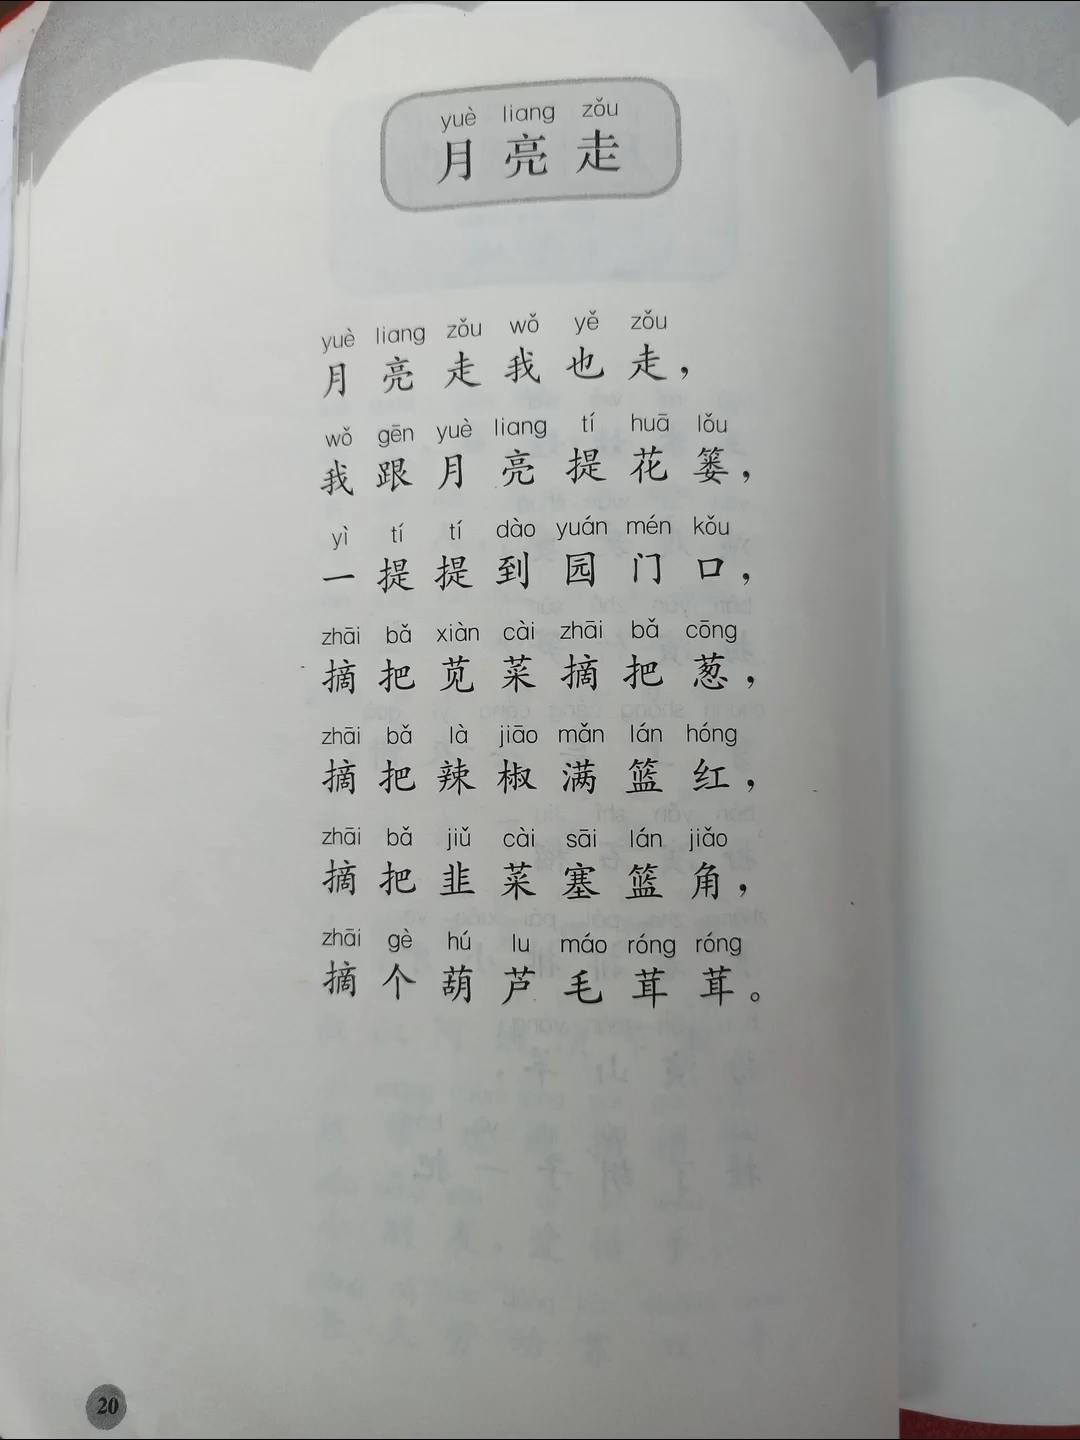 yuè liang zǒu
月亮走
yuè liang zǒu wǒ yě zǒu
月亮走我也走，
wǒ gēn yuè liang tí huā lǒu
我跟月亮提花篓，
yì tí tí dào yuán mén kǒu
一提提到园门口，
zhāi bǎ xiàn cài zhāi bǎ cōng
摘把苋菜摘把葱，
zhāi bǎ là jiāo mǎn lán hóng
摘把辣椒满篮红，
zhāi bǎ jiǔ cài sāi lán jiǎo
摘把韭菜塞篮角，
zhāi gè hú lu máo róng róng
摘个葫芦毛茸茸。
20